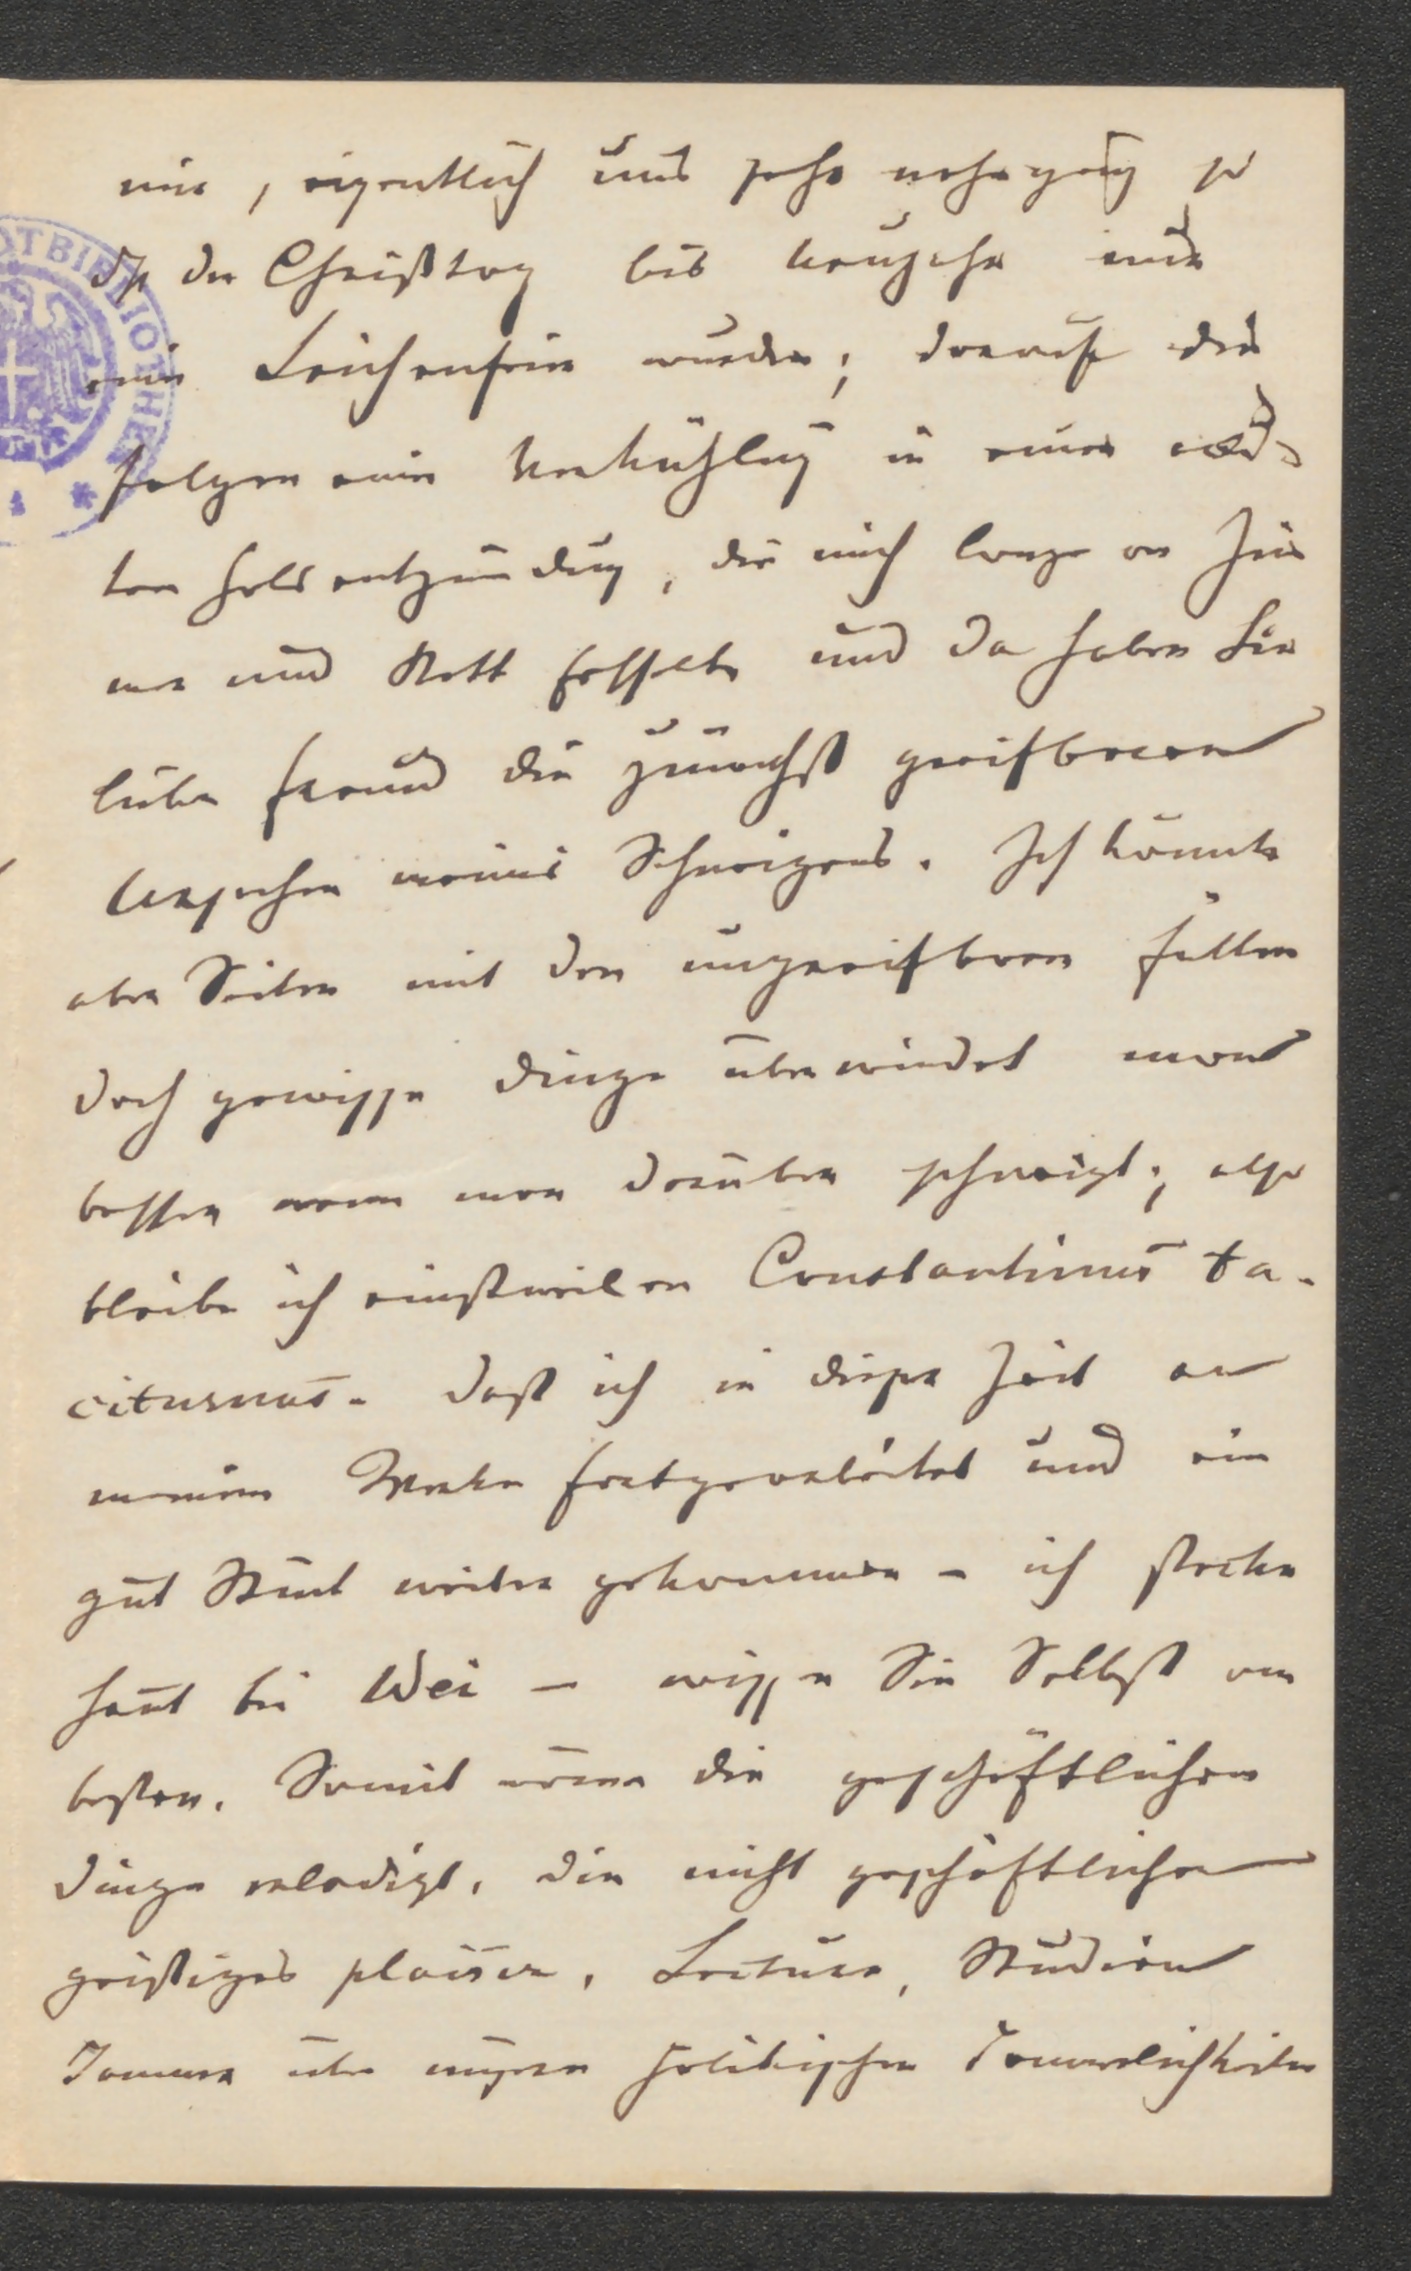 mir, eigentlich uns sehr nahe ging so
dß der Christtag bis
eine Leichenfeier wurde; darauf die
Folgen einer Verkühlung in einer
ten Halsentzündung, die mich lange an Zim
mer und Bett fesselte und da haben Sie
lieber Freund die zunächst greifbaren
Ursachen meines Schweigens. Ich könnte
aber Seiten mit den ungreifbaren füllen
doch gewisse Dinge überwindet man
besser wenn man darüber schweigt; also
bleibe ich einstweilen Constantinus ta-
citurnus. Daß ich in dieser Zeit an
meinem Werke fortgearbeitet und ein
gut Stück weiter gekommen – ich stecke
heut bei Wei – wissen Sie Selbst am
besten. Somit wären die geschäftlichen
Dinge erledigt, die nicht geschäftlichen
geistiges plaisir, Lecture, Studien
Jammer über unsere politischen Jämmerlichkeiten